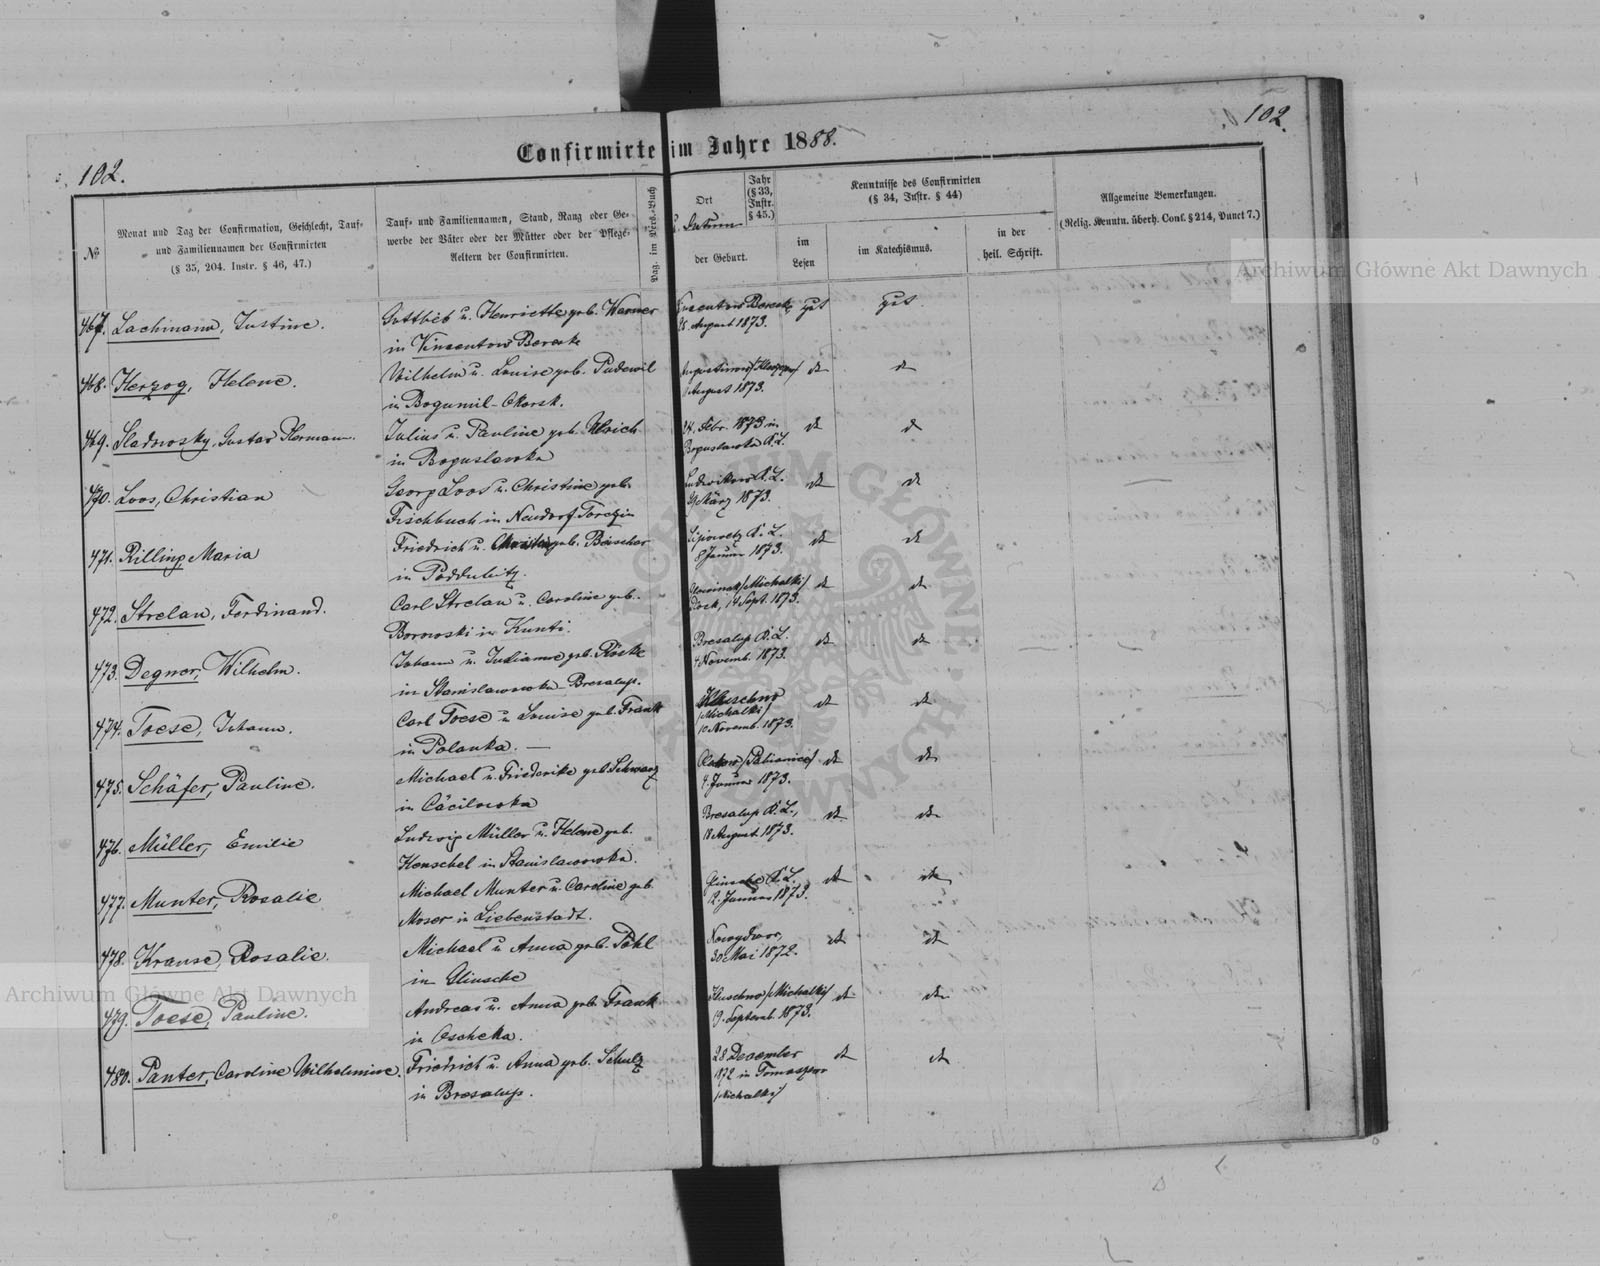 102.
102.
Confirmirte im Jahre 1888.
№
Monat und Tag der Confirmation, Geschlecht, Tauf-
und Familiennamen der Confirmirten
(§ 35, 204. Instr. § 46, 47.)
Tauf- und Familiennamen, Stand, Rang oder Ge-
werbe der Väter oder der Mütter oder der Pflege-
Aeltern der Confirmirten.
Pag. im Pers.-Buch
Ort
u. Datum
der Geburt.
Jahr
(§ 33,
Instr.
§ 45.)
Kenntnisse des Confirmirten
(§ 34, Instr. § 44)
im
Lesen
im Katechismus.
in der
heil. Schrift.
Allgemeine Bemerkungen.
(Relig. Kenntn. überh. Conf. § 214, Punct 7.)
467. Lachmann, Justine.
Gottlieb u. Henriette geb. Werner
in Vincentow Bereste
Vincentow Bereste
August 1873.
gut
gut
468. Herzog, Helene.
Wilhelm u. Louise geb. Pudewil
in Bogumil-Okorsk.
August 1873.
dt
dt
469. Sladowsky, Gustav Hermann.
Julius u. Pauline geb. Ulrich
in Boguslawka
24. Febr. 1873 in
Boguslawka K. L.
dt
dt
470. Loos, Christian
Georg Loos u. Christine geb.
Fischbuch in Neudorf Torczin
Ludwikow K. L.
März 1873.
dt
dt
471. Rilling, Maria
Friedrich u. geb. Böscher
in Poddubitz.
Lipowetz K. L.
8 Januar 1873.
dt
dt
472. Strelau, Ferdinand.
Carl Strelau u. Caroline geb.
Borowski in Kunti.
/Michalki/
Sept. 1873.
dt
dt
473. Degner, Wilhelm.
Johann u. Julianne geb. Röske
in Stanislawowka-Bresalup.
Bresalup K. L.
4 Novemb. 1873.
dt
dt
474. Toese, Johann.
Carl Toese u. Louise geb. Frank
in Polanka. —
Kluschno
/Michalki/
10 Novemb. 1873.
dt
dt
475. Schäfer, Pauline.
Michael u. Friederike geb. Schwarz
in Cäcilowka
/Pabianice/
4. Januar 1873.
dt
dt
476. Müller, Emilie
Ludwig Müller u. Helene geb.
Henschel in Stanislawowka.
Bresalup K. L.,
18 August 1873.
dt
dt
477. Munter, Rosalie
Michael Munter u. Caroline geb.
Moser in Liebenstadt.
Glinsche K. L.
12. Januar 1873.
dt
dt
478. Krause, Rosalie.
Michael u. Anna geb. Pohl
in Glinsche
Nowydwor,
30 Mai 1872.
dt
dt
479. Toese, Pauline.
Andreas u. Anna geb. Frank
in Oscheka.
Kluschno /Michalki/
19. Septemb. 1873.
dt
dt
480. Panter, Caroline Wilhelmine.
Friedrich u. Anna geb. Schulz
in Bresalup.
28 December
1872 in Tomaszow
/Michalki/
dt
dt
Archiwum Główne Akt Dawnych
Archiwum Główne Akt Dawnych
ARCHIWUM GŁÓWNE AKT DAWNYCH